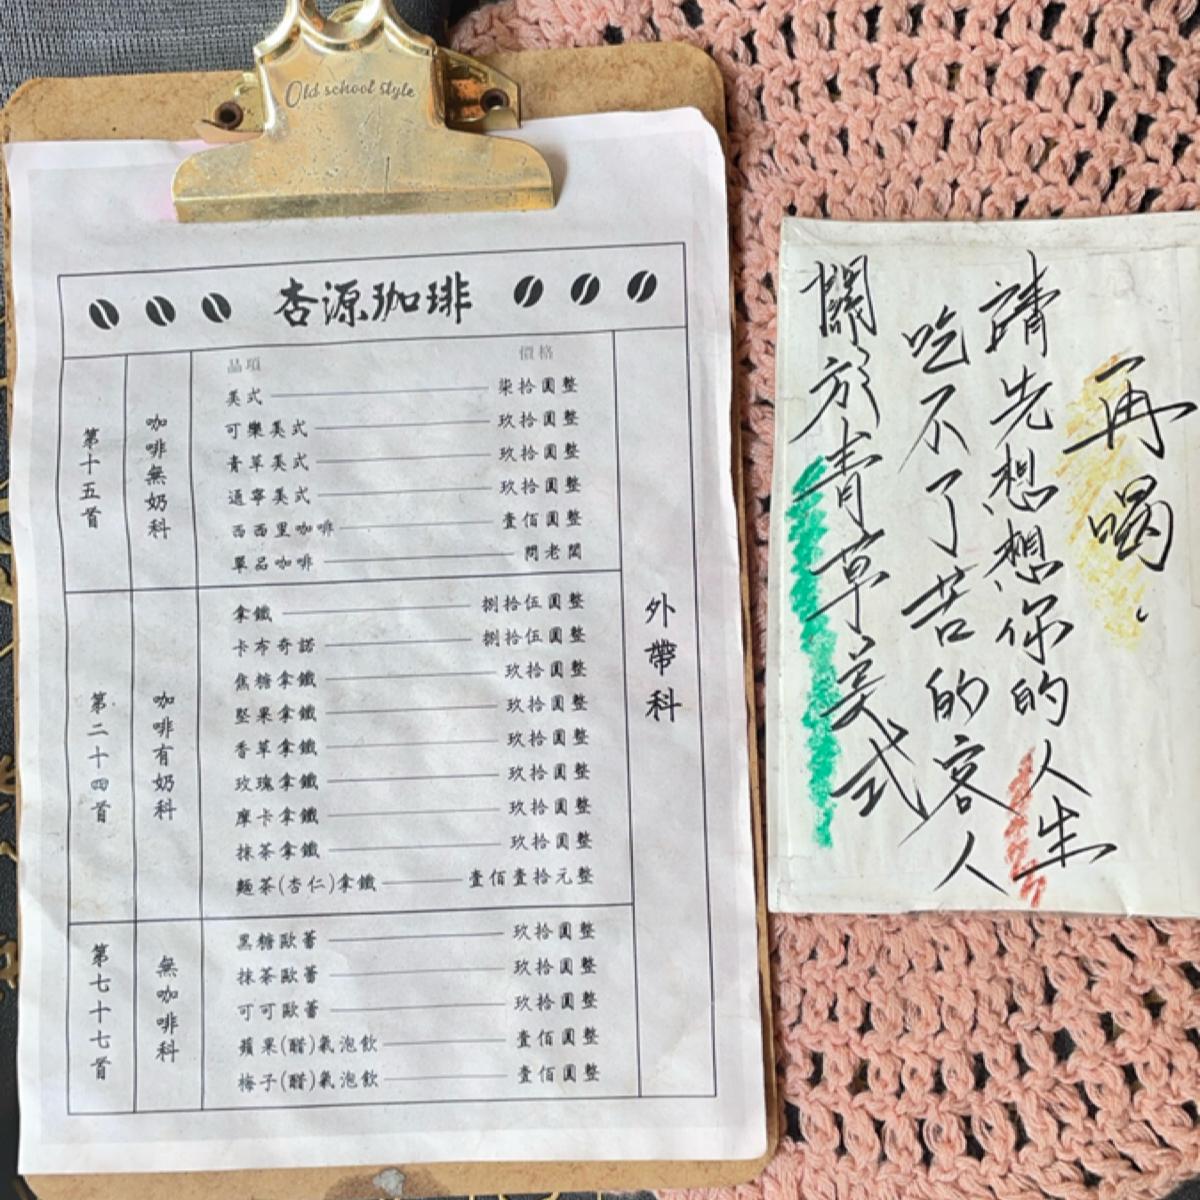 Old school style
杏源珈琲
外帶科
第十五首
咖啡無奶科
品項 價格
美式 柒拾圓整
可樂美式 玖拾圓整
青草美式 玖拾圓整
通寧美式 玖拾圓整
西西里咖啡 壹佰圓整
單品咖啡 問老闆
第二十四首
咖啡有奶科
拿鐵 捌拾伍圓整
卡布奇諾 捌拾伍圓整
焦糖拿鐵 玖拾圓整
堅果拿鐵 玖拾圓整
香草拿鐵 玖拾圓整
玫瑰拿鐵 玖拾圓整
摩卡拿鐵 玖拾圓整
抹茶拿鐵 玖拾圓整
麵茶(杏仁)拿鐵 壹佰壹拾元整
第七十七首
無咖啡科
黑糖歐蕾 玖拾圓整
抹茶歐蕾 玖拾圓整
可可歐蕾 玖拾圓整
蘋果(醋)氣泡飲 壹佰圓整
梅子(醋)氣泡飲 壹佰圓整
關於青草美式
吃不了苦的客人
請先想想你的人生
再喝。